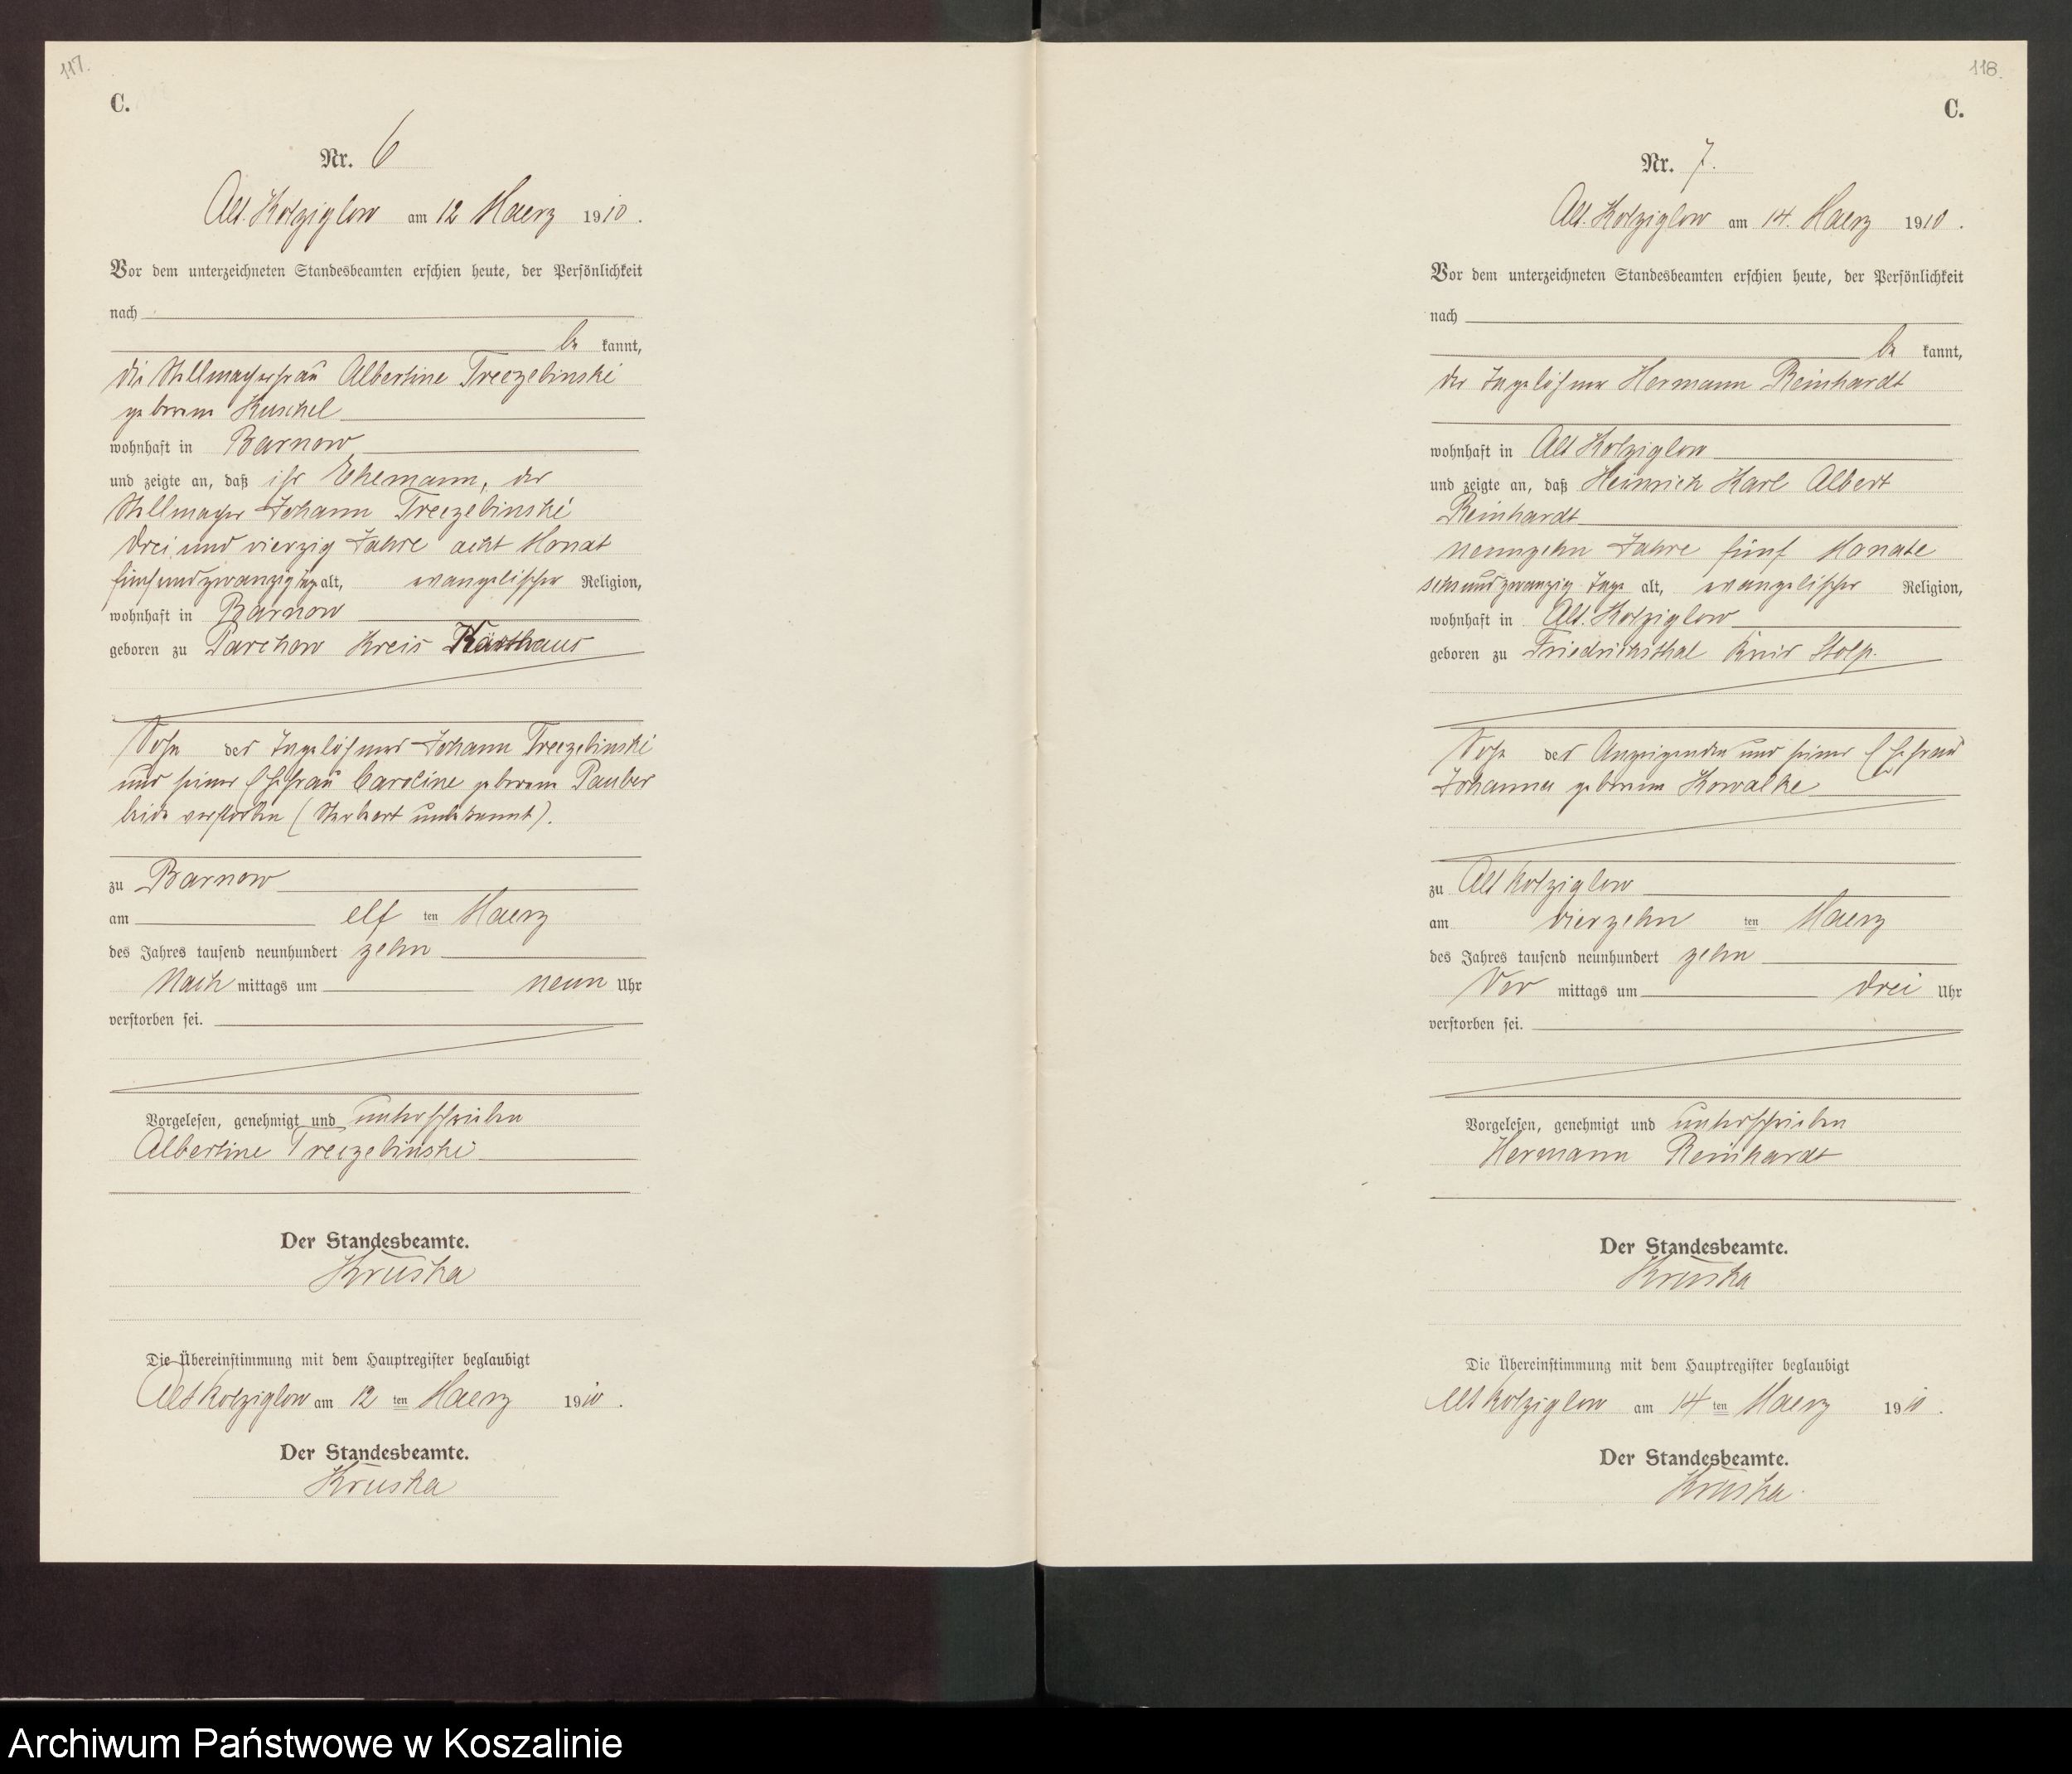 117.
C.
Nr. 6
Alt. Kolziglow am 12 Maerz 1910.
Vor dem unterzeichneten Standesbeamten erschien heute, der Persönlichkeit
nach
be kannt,
die Stellmacherfrau Albertine Treczebinski
geborene Kuschel
wohnhaft in Barnow
und zeigte an, daß ihr Ehemann, der
Stellmacher Johann Treczebinski
drei und vierzig Jahre acht Monat
fünfundzwanzig Tage alt, evangelischer Religion,
wohnhaft in Barnow
geboren zu Parchow Kreis Karthaus
Sohn des Tagelöhners Johann Treczebinski
und seiner Ehefrau Caroline geborene Pauber
beide verstorben (Sterbeort unbekannt).
zu Barnow
am elf ten Maerz
des Jahres tausend neunhundert zehn
Nach mittags um neun Uhr
verstorben sei.
Vorgelesen, genehmigt und unterschrieben
Albertine Treczebinski
Der Standesbeamte.
Kruska
Die Übereinstimmung mit dem Hauptregister beglaubigt
Alt Kolziglow am 12 ten Maerz 1910.
Der Standesbeamte.
Kruska
118.
C.
Nr. 7.
Alt. Kolziglow am 14. Maerz 1910.
Vor dem unterzeichneten Standesbeamten erschien heute, der Persönlichkeit
nach
be kannt,
der Tagelöhner Hermann Reinhardt
wohnhaft in Alt Kolziglow
und zeigte an, daß Heinrich Karl Albert
Reinhardt
neunzehn Jahre fünf Monate
sechsundzwanzig Tage alt, evangelischer Religion,
wohnhaft in Alt. Kolziglow
geboren zu Friedrichsthal Kreis Stolp.
Sohn des Anzeigenden und seiner Ehefrau
Johanna geborene Kowalke
zu Alt Kolziglow
am vierzehn ten Maerz
des Jahres tausend neunhundert zehn
Vor mittags um drei Uhr
verstorben sei.
Vorgelesen, genehmigt und unterschrieben
Hermann Reinhardt
Der Standesbeamte.
Kruska
Die Übereinstimmung mit dem Hauptregister beglaubigt
Alt Kolziglow am 14 ten Maerz 1910.
Der Standesbeamte.
Kruska.
Archiwum Państwowe w Koszalinie